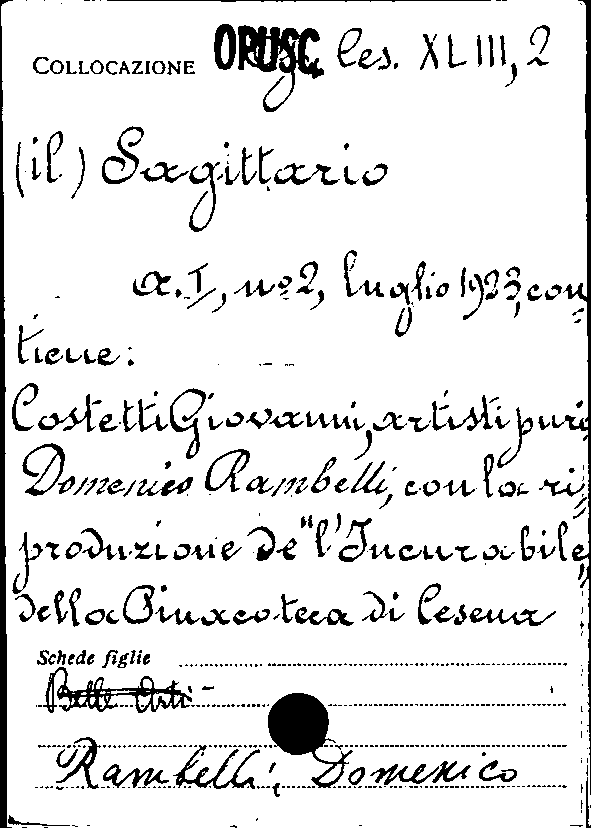 COLLOCAZIONE OPUSC. Ces. XLIII, 2
(il) Sagittario
a. I, nº 2, luglio 1923, con=
tiene:
Costetti Giovanni, artisti puri
Domenico Rambelli, con la ri=
produzione de "l'Incurabile"
della Pinacoteca di Cesena
Schede figlie
Belle Arti -
Rambelli, Domenico